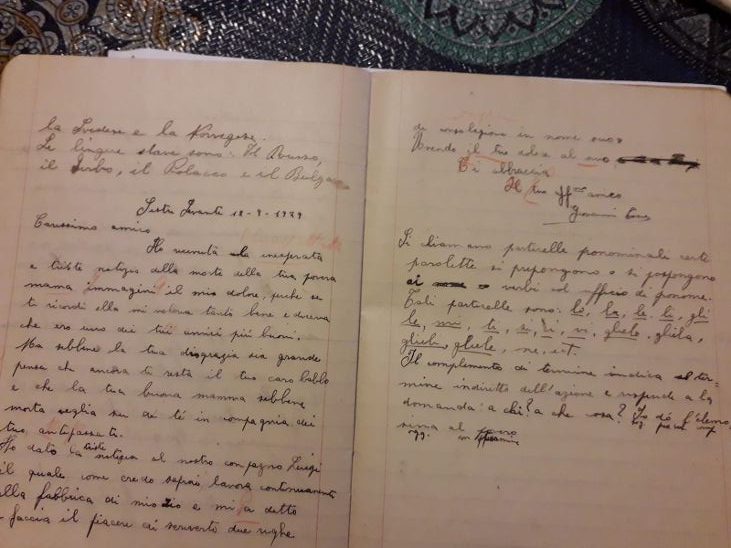 la Svedese e la Norvegese.
Le lingue slave sono: Il Russo,
il Serbo, il Polacco e il Bulgaro
Sestri Levante 12-9-1929
Carissimo amico
Ho ricevuto la inesperata
e triste notizia della morte della tua povera
mamma immagini il mio dolore, perche se
ti ricordi ella mi voleva tanto bene e diceva
che ero uno dei tuoi amici più buoni.
Ma sebbene la tua disgrazia sia grande
pensa che ancora ti resta il tuo caro babbo
e che la tua buona mamma sebbene
morta veglia su di te in compagnia dei
tuoi antipassati.
Ho dato la triste notizia al nostro compagno Luigi
il quale come credo saprai lavora continuamente
alla fabbrica di mio zio e mi a detto
faccia il piacere di scriverti due righe
di consolazione in nome suo.
Unendo il tuo dolore al suo
Ti abbraccia
Il tuo aff.mo amico
Giovanni
Si chiamano particelle pronominali certe
parolette si prepongono o si pospongono
ai verbi col ufficio di pronome.
Tali particelle sono: lo, la, le, li, gli
le, mi, ti, si, ci, vi, glielo, gliela,
glieli, gliele, ne, ecc.
Il complemento di termine indica il ter-
mine indiretto dell'azione e risponde a la
domanda: a chi? a che cosa? Io dó l'elemo-
sina al
ogg.